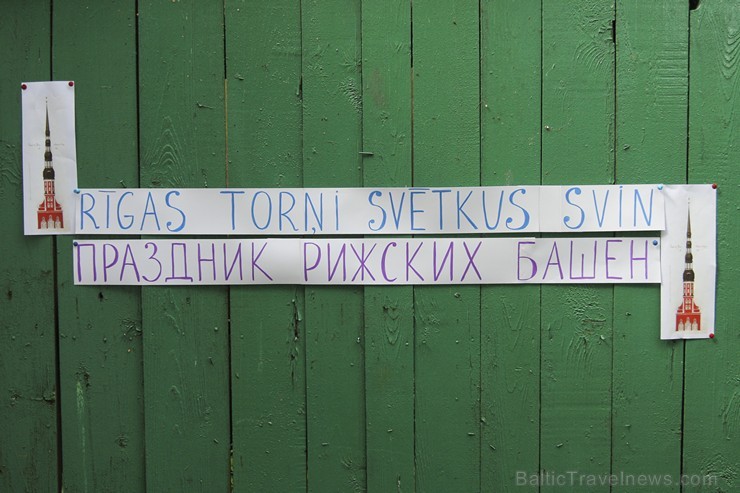 RĪGAS TORŅI SVĒTKUS SVIN
ПРАЗДНИК РИЖСКИХ БАШЕН
BalticTravelnews.com